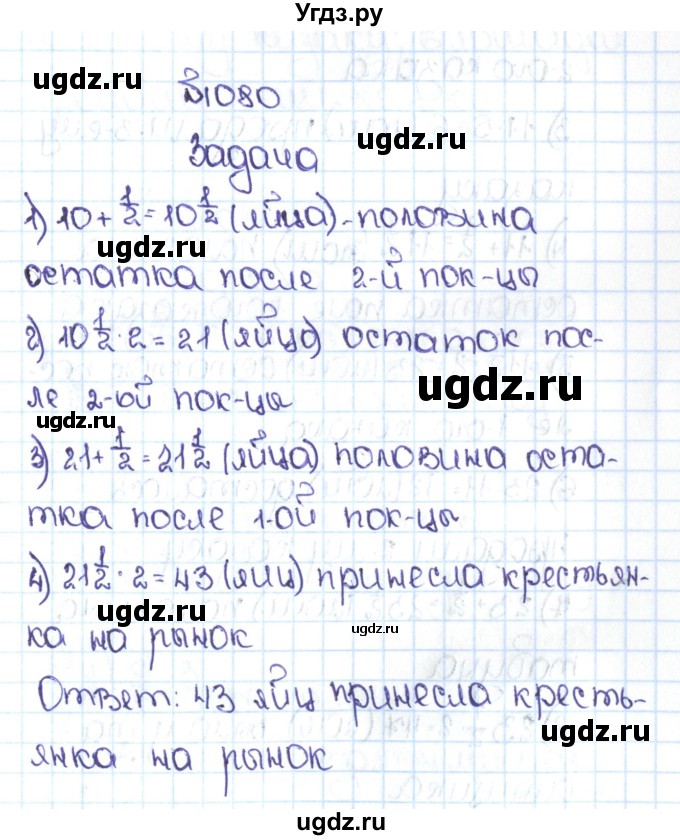 Угдз.ру
ugdz.ru
№1080
ugdz.ru
Задача
1) 10 + 1/2 = 10 1/2 (яйца) - половина
ugdz.ru
остатка после 2-й пок-цы
2) 10 1/2 · 2 = 21 (яйцо) остаток пос-
ugdz.ru
ле 2-ой пок-цы
ugdz.ru
3) 21 + 1/2 = 21 1/2 (яйца) половина оста-
тка после 1-ой пок-цы
4) 21 1/2 · 2 = 43 (яиц) принесла крестьян-
ugdz.ru
ugdz.ru
ка на рынок
Ответ: 43 яйц принесла кресть-
ugdz.ru
янка на рынок
ugdz.ru